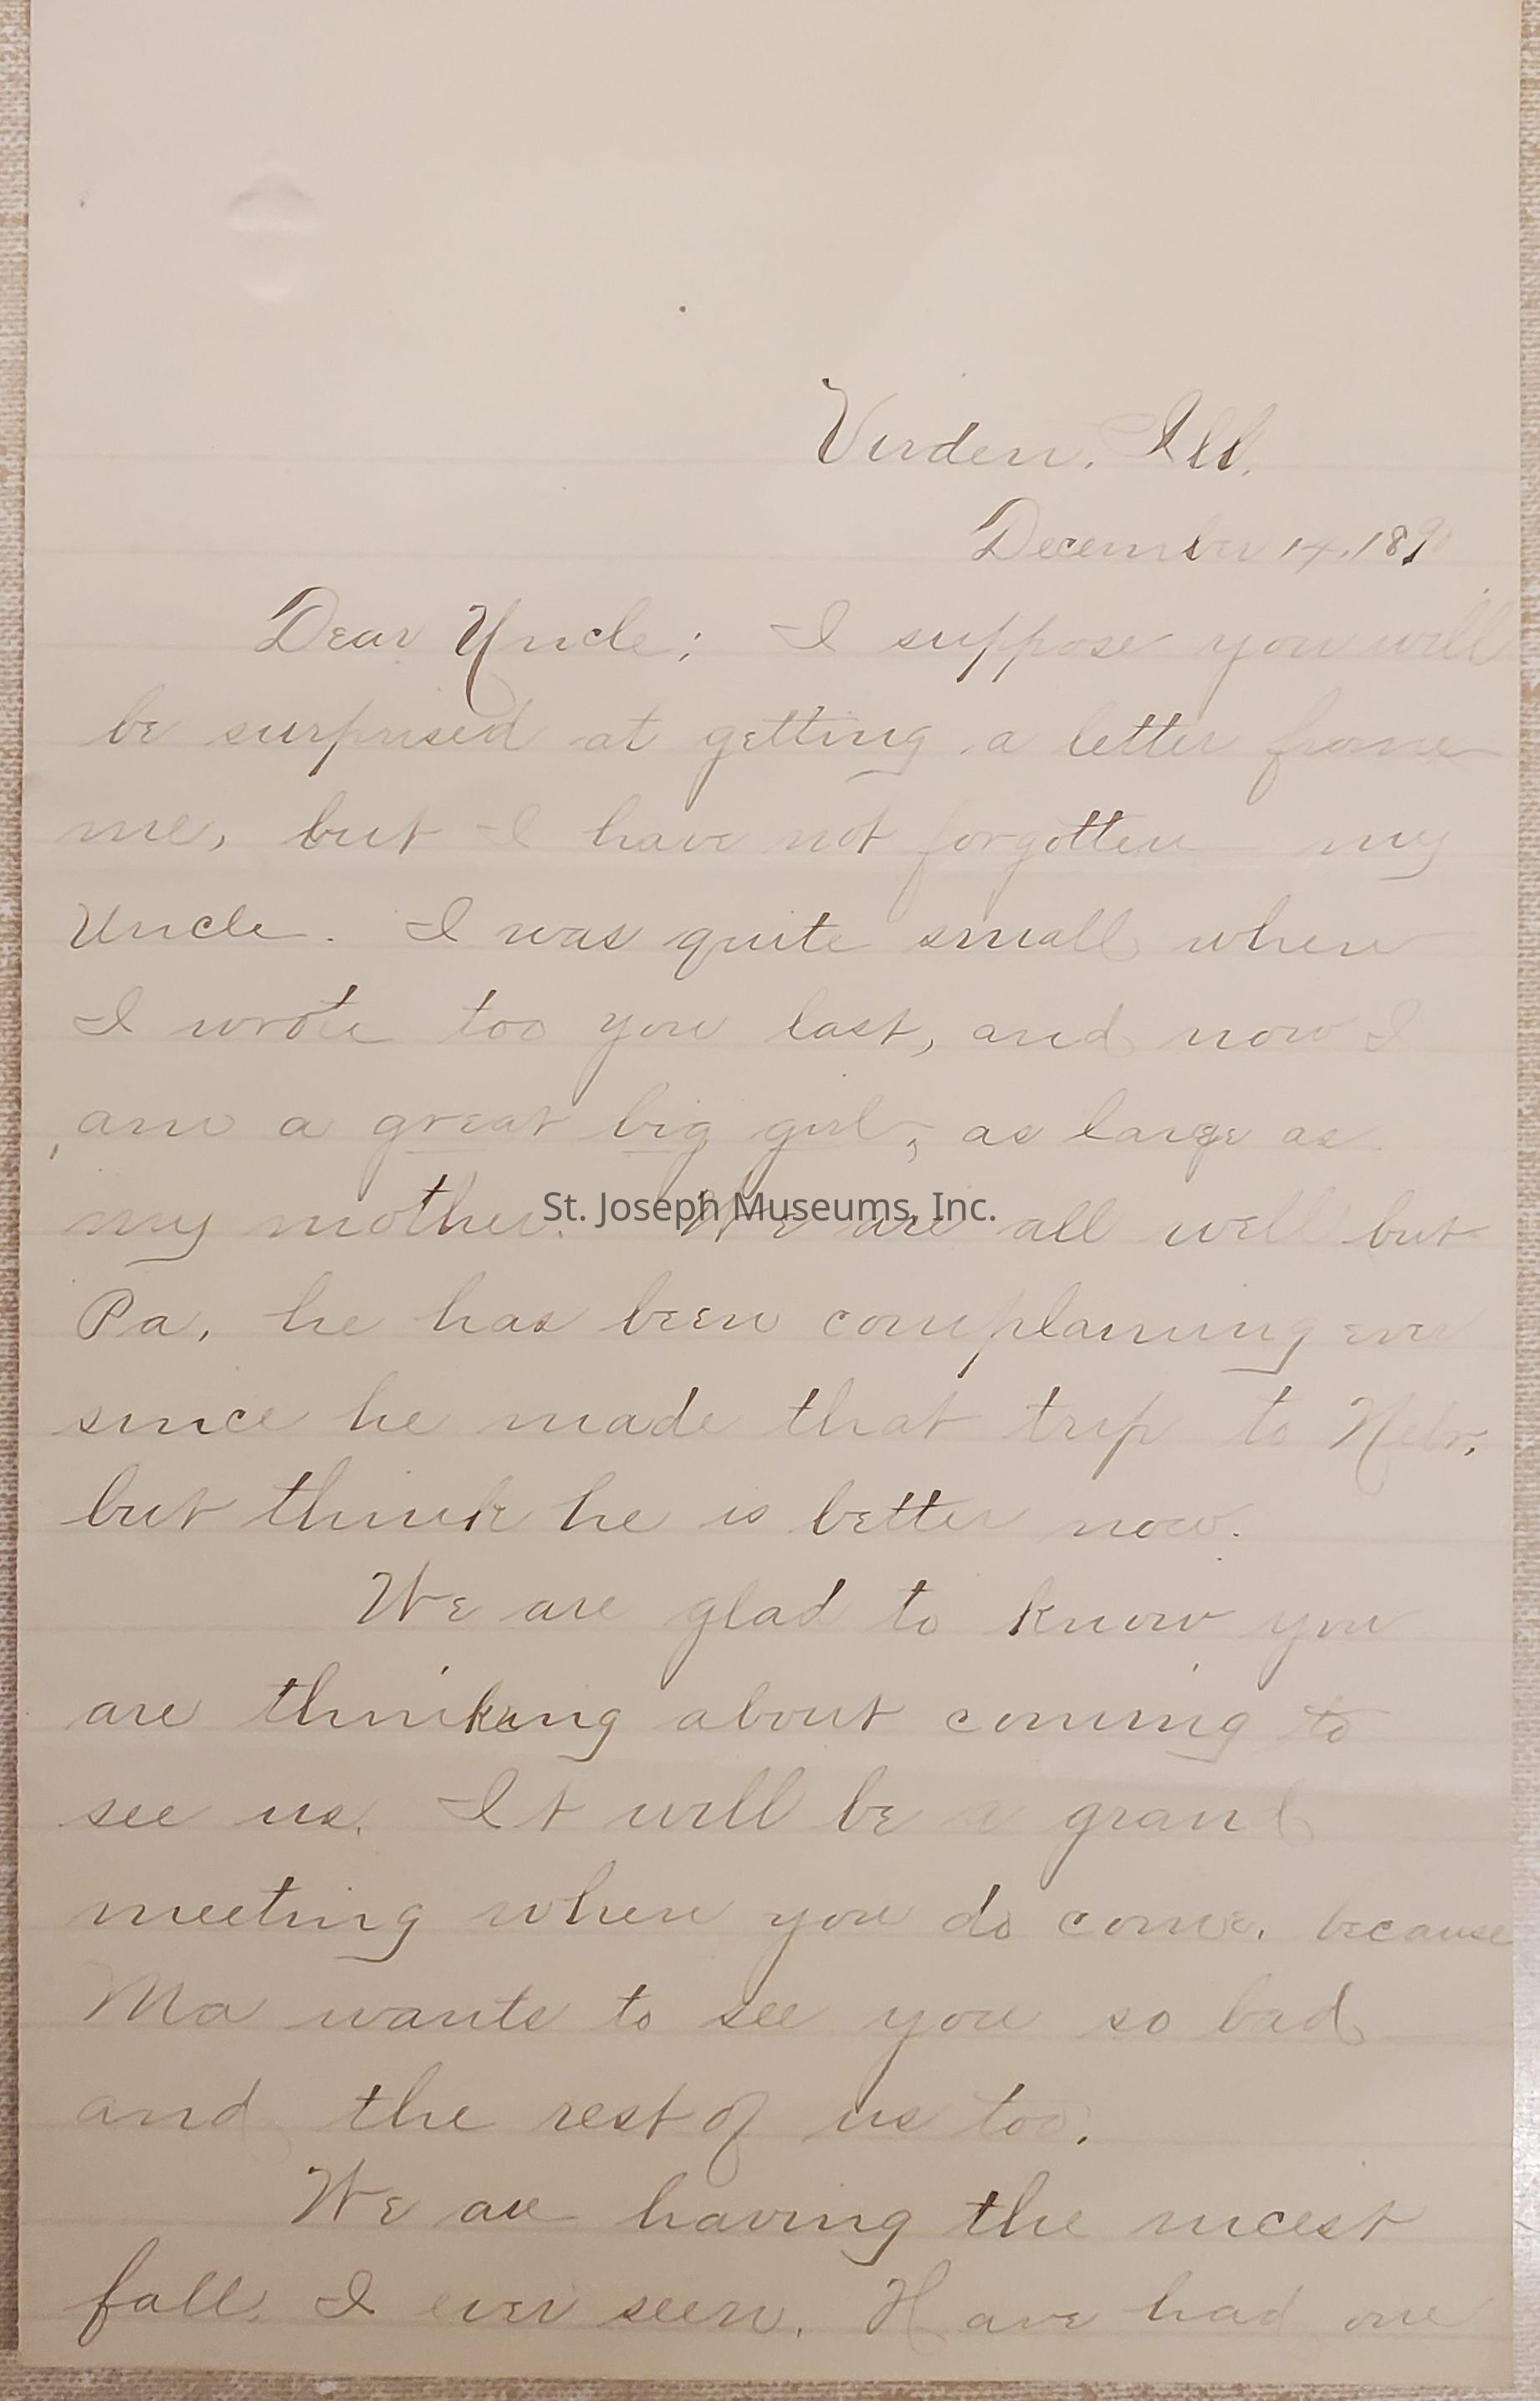 Virden, Ill.
December 14, 189
Dear Uncle; I suppose you will
be surprised at getting a letter from
me, but I have not forgotten my
Uncle. I was quite small when
I wrote too you last, and now I
am a great big girl, as large as
my mother. We are all well but
St. Joseph Museums, Inc.
Pa, he has been complaining ever
since he made that trip to Nebr,
but think he is better now.
We are glad to know you
are thinking about coming to
see us. It will be a grand
meeting when you do come, because
Ma wants to see you so bad
and the rest of us too.
We are having the nicest
fall, I ever seen. Have had one